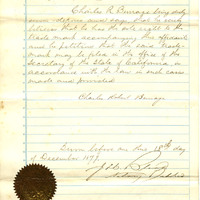 Charles R. being duly
sworn deposes and says that he verily
believes that he has the sole right to the
trade mark accompanying this affidavit
and to petitions that the same trade-
mark may be filed in the office of the
Secretary of the State of California in
accordance with the law in such cases
made and provided
Charles Robert
Sworn before me this 18th day
of December 1897
Notary Public